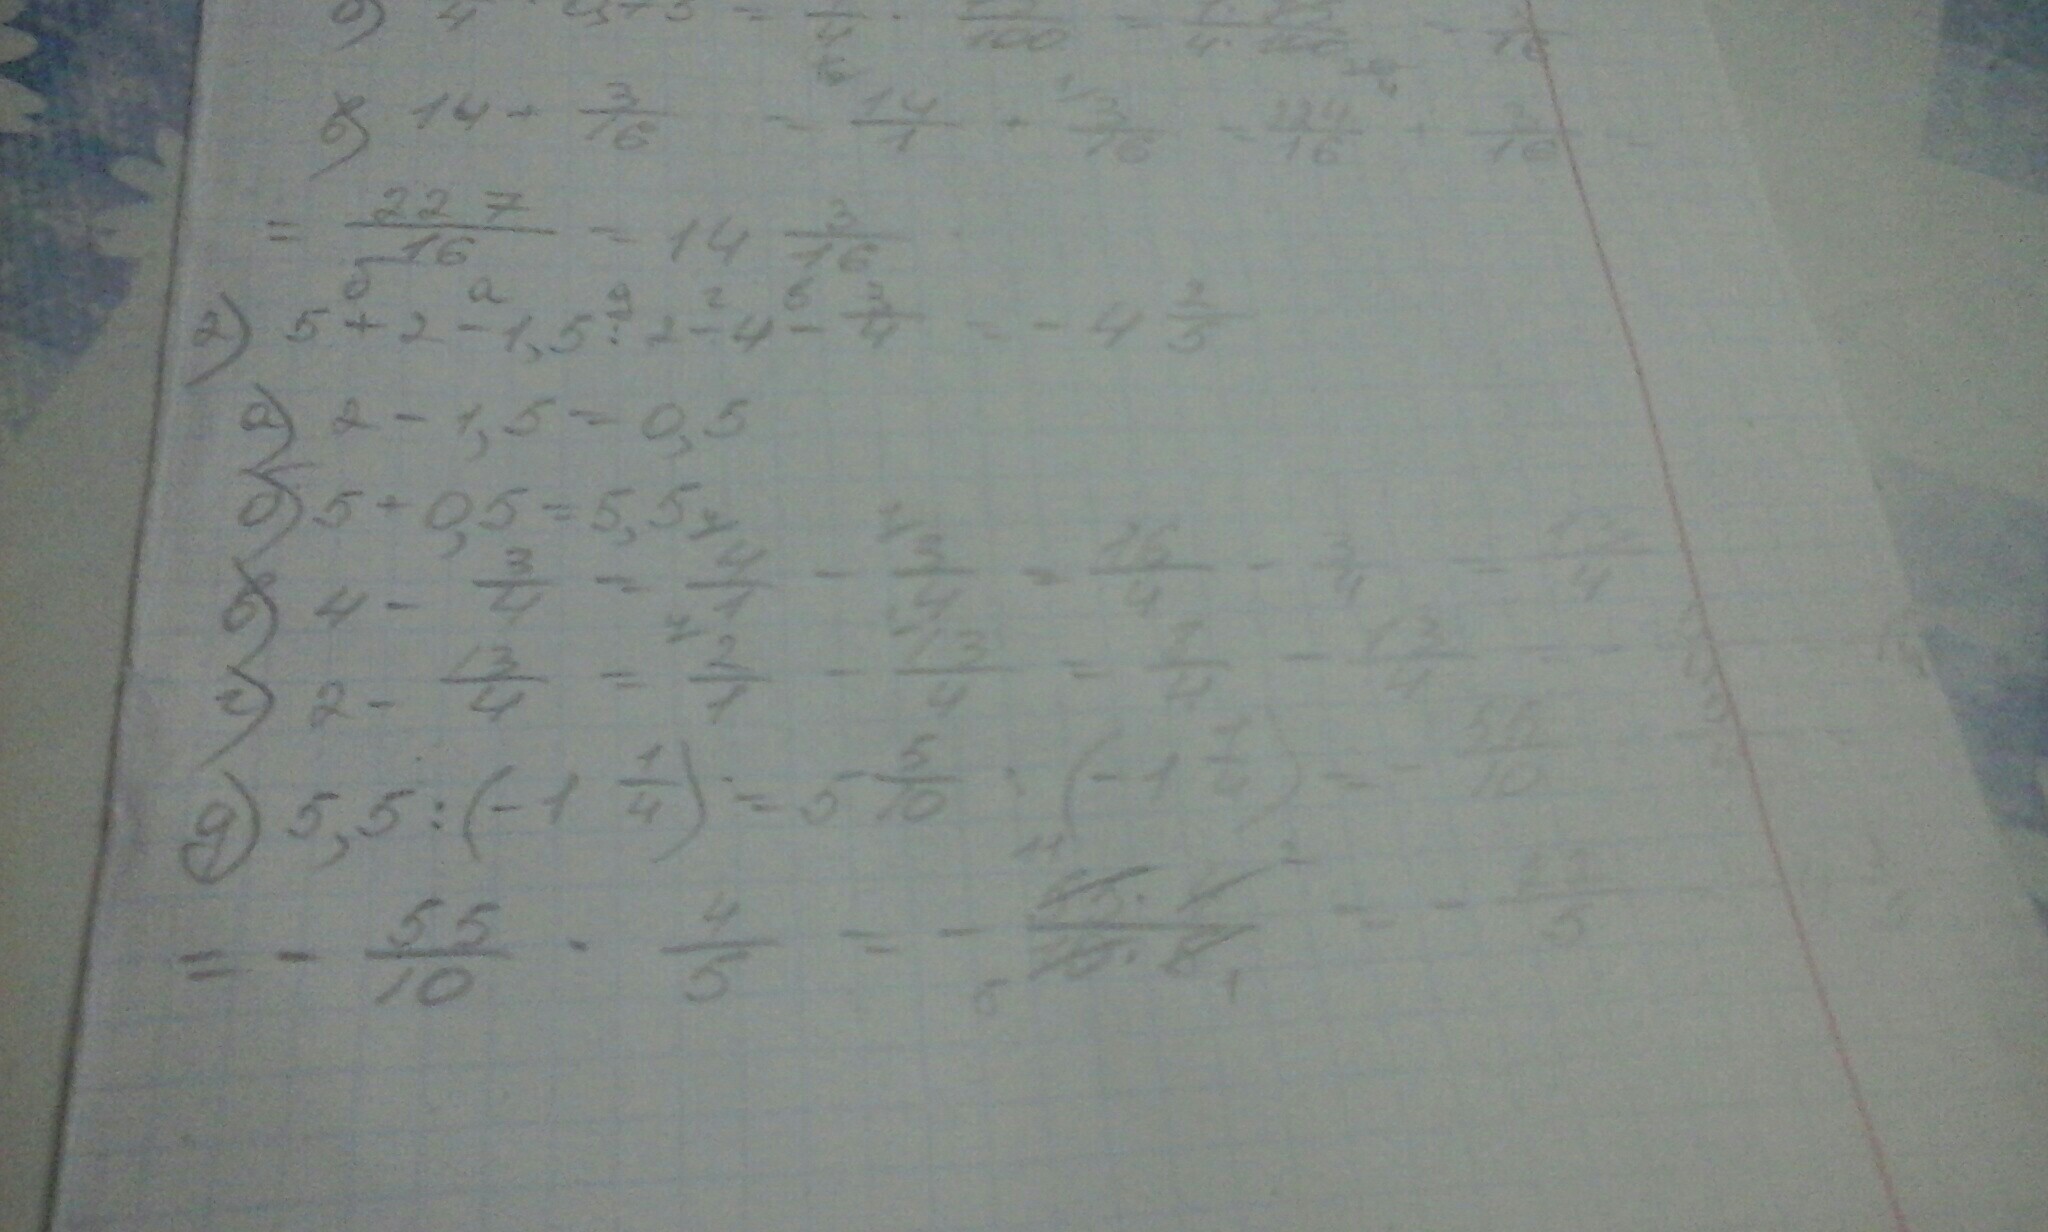 б) 1/4 · 0,75 = 1/4 · 75/100 = 1·75/4·100 = 3/16
в) 14 + 3/16 = 14/1 + 3/16 = 224/16 + 3/16 =
= 227/16 = 14 3/16
б а д г в
2) 5 + 2 - 1,5 : 2 - 4 - 3/4 = - 4 2/5
а) 2 - 1,5 = 0,5
б) 5 + 0,5 = 5,5
в) 4 - 3/4 = 4/1 - 3/4 = 16/4 - 3/4 = 13/4
г) 2 - 13/4 = 2/1 - 13/4 = 8/4 - 13/4 = -
д) 5,5 : (-1 1/4) = 5 5/10 : (-1 1/4) = - 55/10
= - 55/10 · 4/5 = - 55·4/10·5 = - 22/5